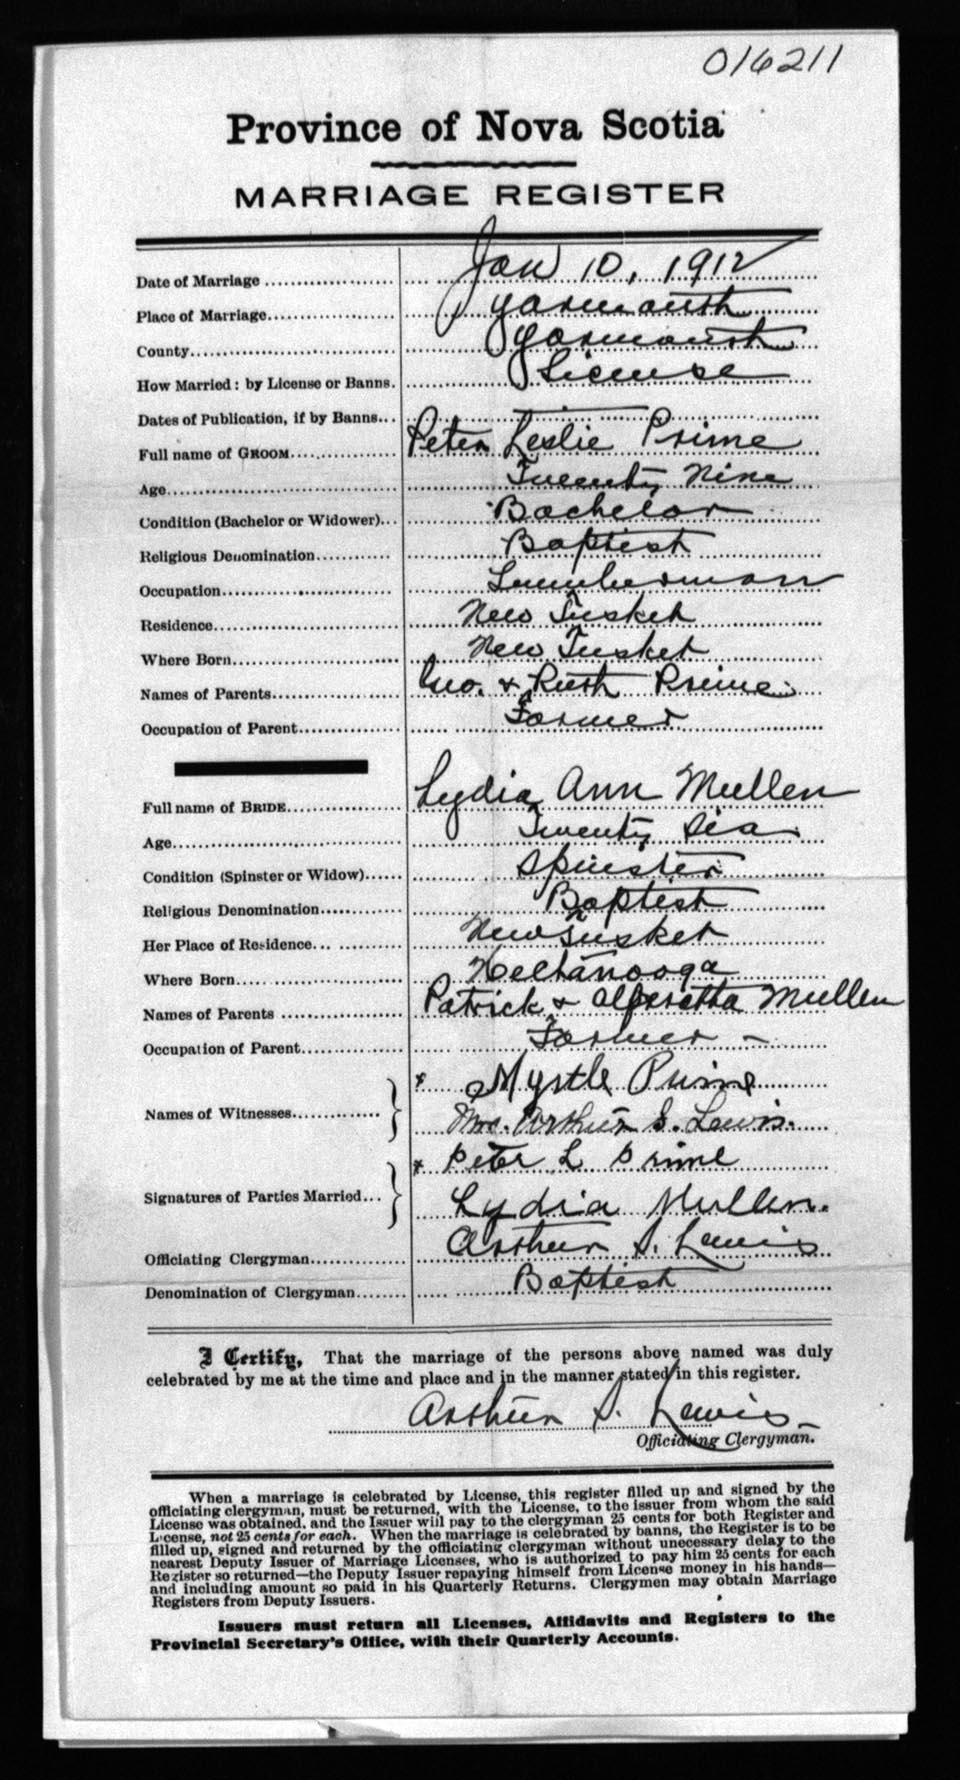 016211
Province of Nova Scotia
MARRIAGE REGISTER
Date of Marriage .................... Jan 10, 1912
Place of Marriage.................... Yarmouth
County.................... Yarmouth
How Married: by License or Banns. License
Dates of Publication, if by Banns...
Full name of GROOM.................... Peter Leslie Prime
Age.................... Twenty Nine
Condition (Bachelor or Widower)... Bachelor
Religious Denomination............ Baptist
Occupation.................... Lumberman
Residence.................... New Tusket
Where Born.................... New Tusket
Names of Parents.................... Geo. & Ruth Prime
Occupation of Parent............... Farmer
Full name of BRIDE.................... Lydia Ann Mullen
Age.................... Twenty Six
Condition (Spinster or Widow)...... Spinster
Religious Denomination............ Baptist
Her Place of Residence... ............ New Tusket
Where Born.................... Hectanooga
Names of Parents .................... Patrick & Alferetta Mullen
Occupation of Parent............... Farmer -
Names of Witnesses............ Myrtle Prime
Mrs. Arthur S. Lewis.
Signatures of Parties Married... Peter L Prime
Lydia Mullen.
Officiating Clergyman............... Arthur S. Lewis
Denomination of Clergyman........ Baptist
I Certify, That the marriage of the persons above named was duly
celebrated by me at the time and place and in the manner stated in this register.
Arthur S. Lewis
Officiating Clergyman.
When a marriage is celebrated by License, this register filled up and signed by the
officiating clergyman, must be returned, with the License, to the issuer from whom the said
License was obtained, and the Issuer will pay to the clergyman 25 cents for both Register and
License, not 25 cents for each. When the marriage is celebrated by banns, the Register is to be
filled up, signed and returned by the officiating clergyman without unecessary delay to the
nearest Deputy Issuer of Marriage Licenses, who is authorized to pay him 25 cents for each
Register so returned—the Deputy Issuer repaying himself from License money in his hands—
and including amount so paid in his Quarterly Returns. Clergymen may obtain Marriage
Registers from Deputy Issuers.
Issuers must return all Licenses, Affidavits and Registers to the
Provincial Secretary's Office, with their Quarterly Accounts.